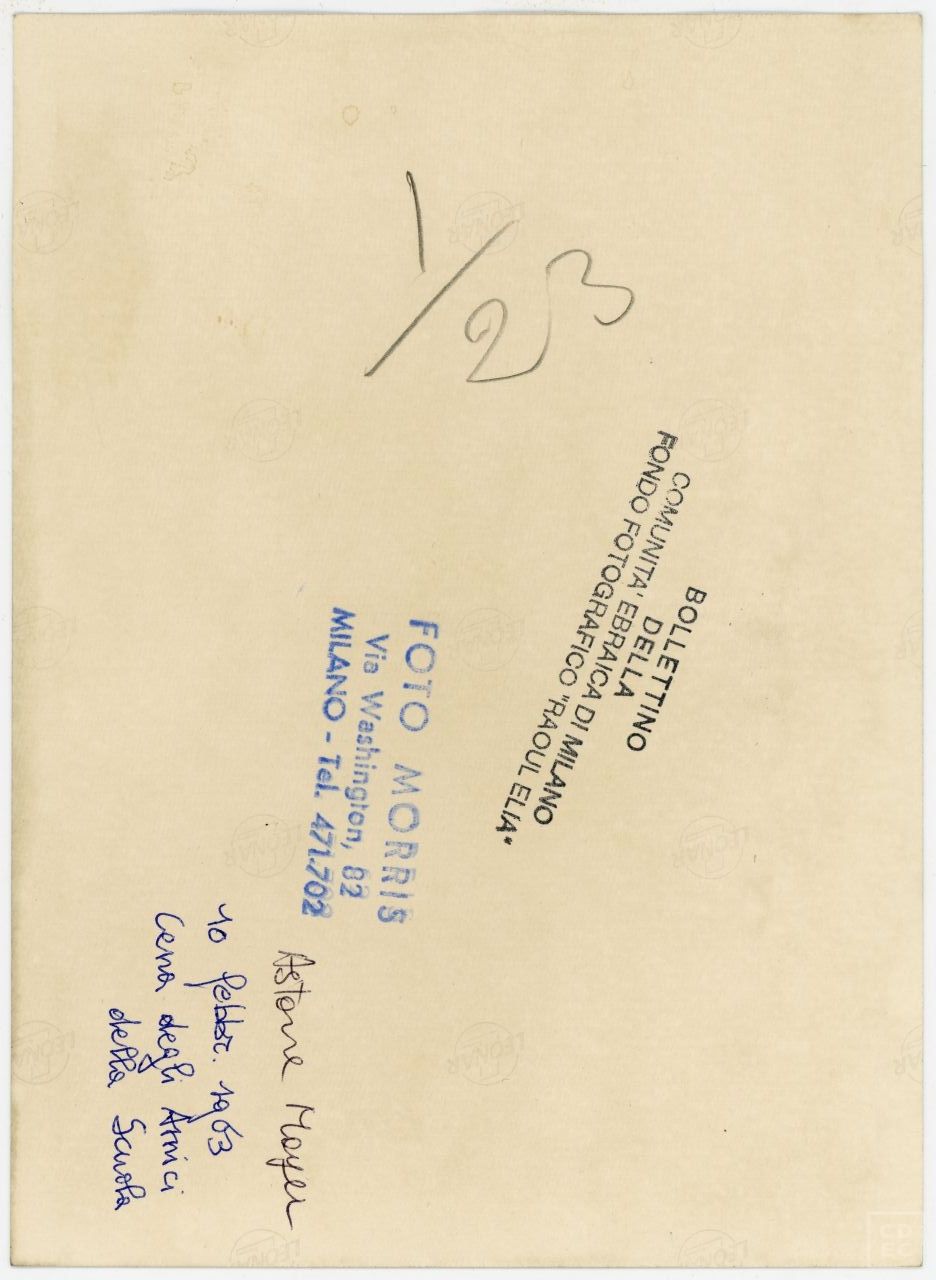 1/23
BOLLETTINO
DELLA
COMUNITA' EBRAICA DI MILANO
FONDO FOTOGRAFICO "RAOUL ELIA"
FOTO MORRIS
Via Washington, 82
MILANO - Tel. 471.702
Astorre Mayer
10 febbr. 1963
Cena degli Amici
della Scuola
LEONAR
CD
EC